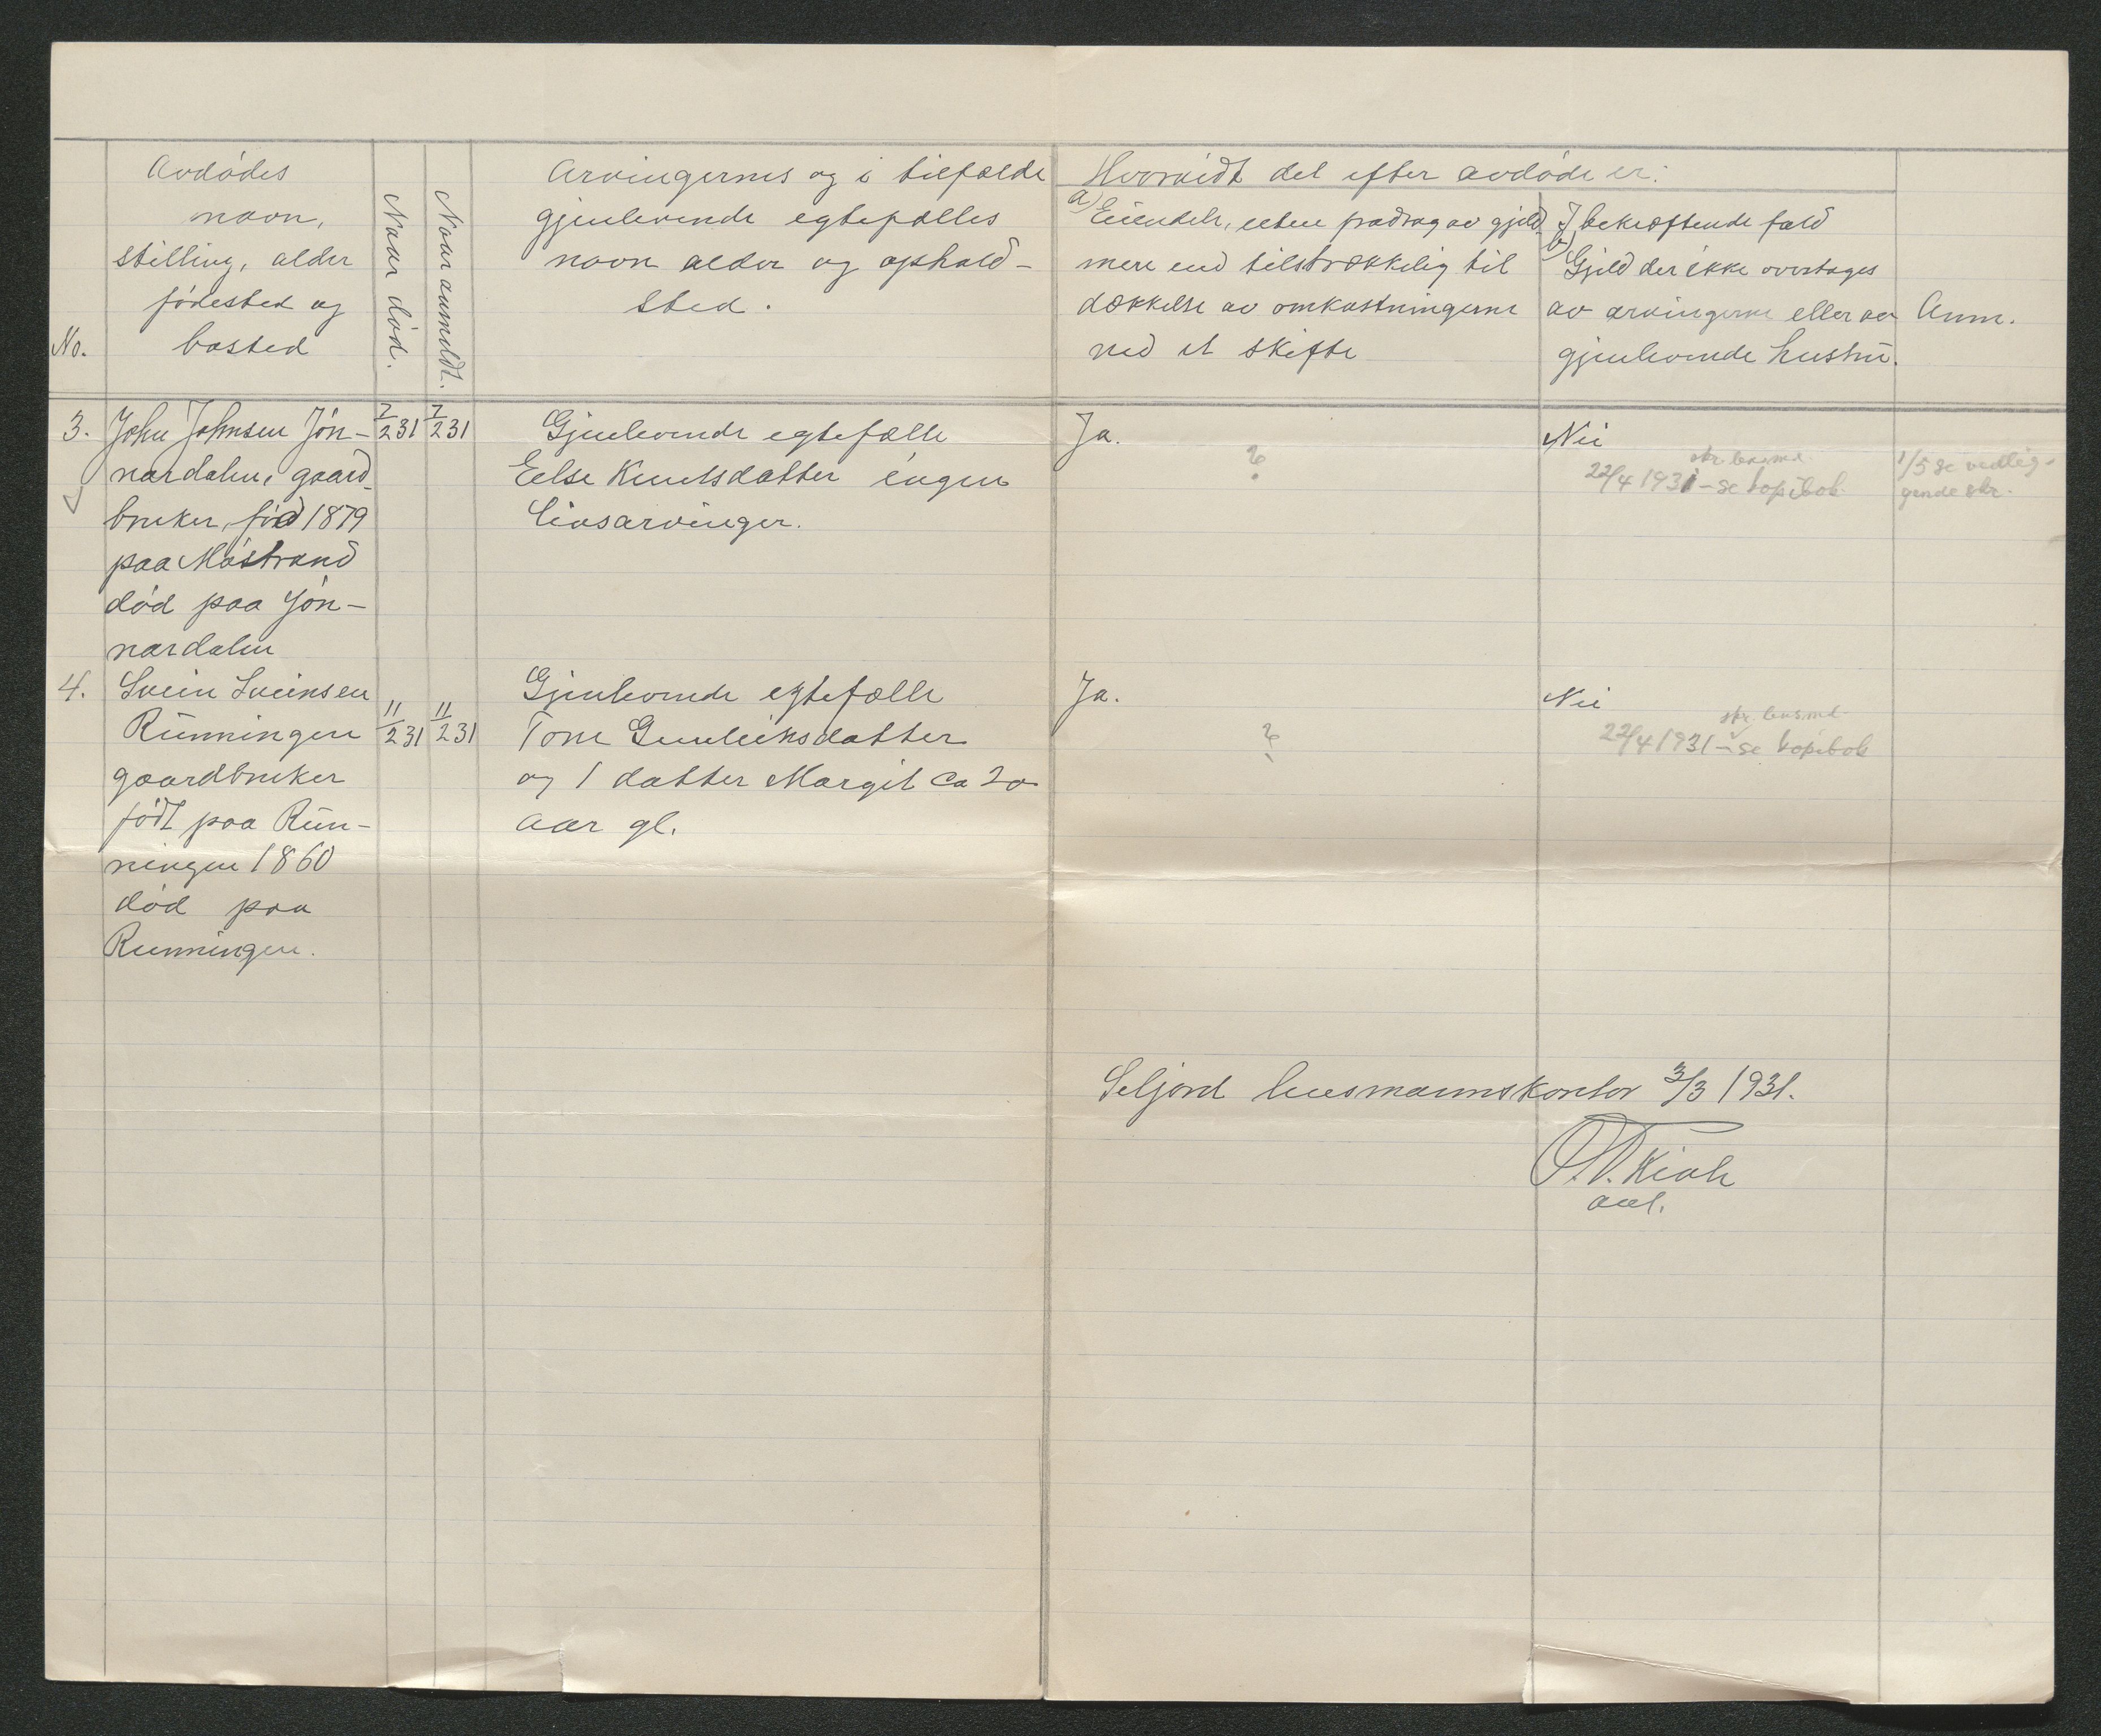 No.
Avdødes
navn,
stilling, alder
fødested og
bosted
Naar død.
Naar anmeldt.
Arvingernes og i tilfælde
gjenlevende egtefælles
navn alder og ophold-
sted.
Hvorvidt det efter avdøde er:
a) Eiendele, uten fradrag av gjeld
mere end tilstrækkelig til
dækkelse av omkostningerne
ved et skifte
I bekræftende fald
b) Gjeld der ikke overtages
av arvingerne eller av
gjenlevende hustru.
Anm.
3.
John Johnsen Jøn-
nardalen, gaard-
bruker, fød 1879
paa Møstrand
død paa Jøn-
nardalen
7/2 31
7/2 31
Gjenlevende egtefælle
Eelse Knutsdatter ingen
livsarvinger.
Ja.
?
Nei
skr. lensmd.
22/4 1931 - se kopibok
1/5 se vedlig-
gende skr.
4.
Svein Sveinsen
Rünningen
gaardbruker
født paa Rün-
ningen 1860
død paa
Runningen.
11/2 31
11/2 31
Gjenlevende egtefælle
Tone Gunleiksdatter
og 1 datter Margit ca 20
aar gl.
Ja.
?
Nei
skr. lensmd.
22/4 1931 - se kopibok
Seljord lensmannskontor 3/3 1931.